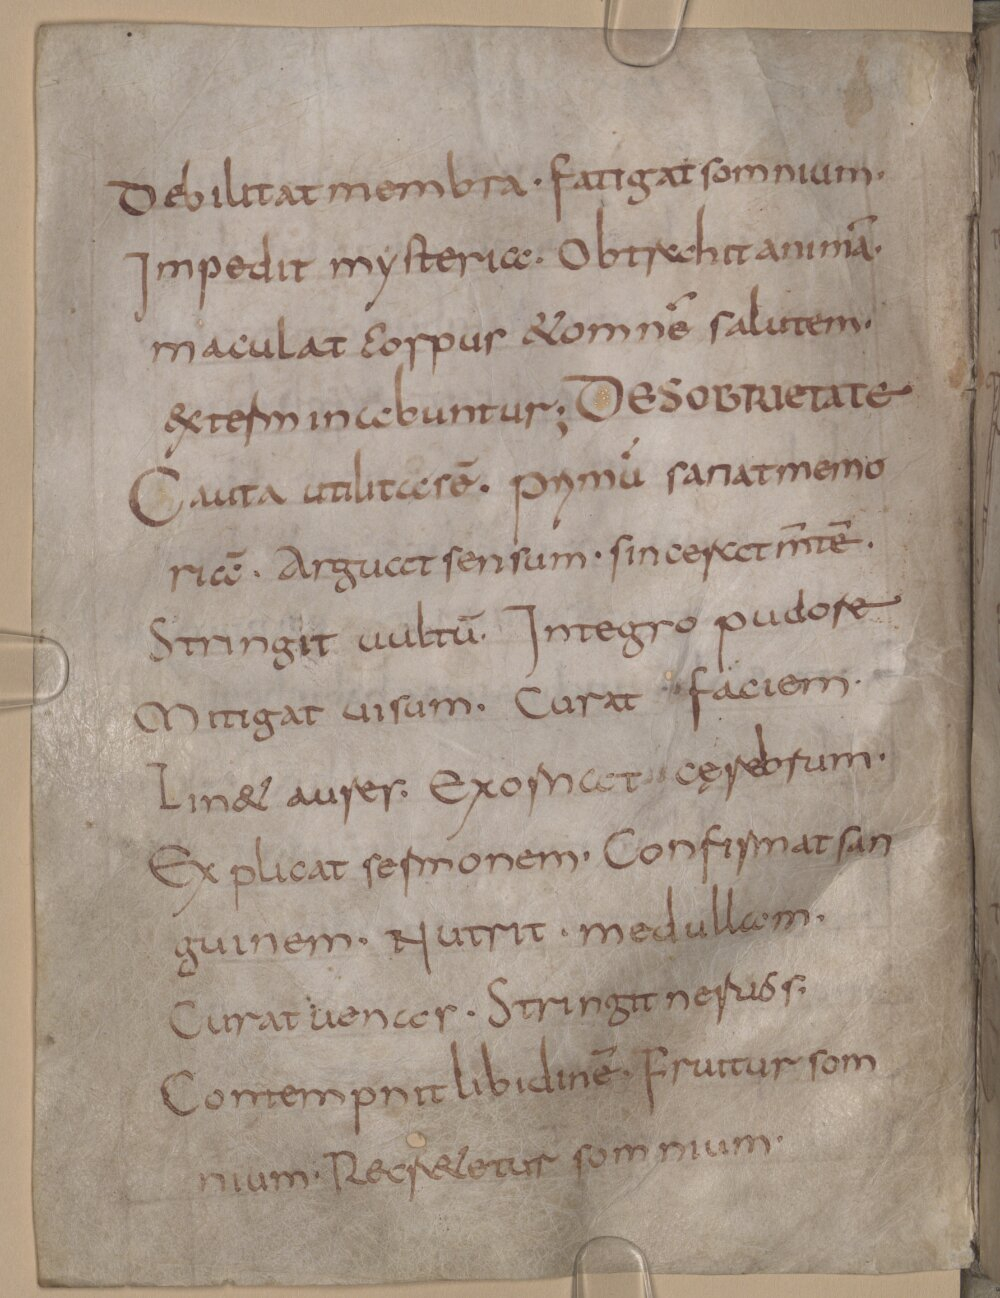 Debilitat membra · fatigat somnium ·
Impedit mysteria · Obtrectit animā ·
maculat corpus & omnē salutem ·
exterminabuntur ; DE SOBRIETATE
Cauta utilitas ē · Primū sanat memo
riā · Arguat sensum · sincerat m̄tē ·
Stringit uultū · Integro pudore
Mitigat uisum · Curat faciem ·
Lin& aures · Exornat cęrebrum ·
Explicat sermonem · Confirmat san
guinem · Nutrit · medullam ·
Curat uenas · Stringit neruos ·
Contempnit libidinē · Fruitur som
nium · somnium ·